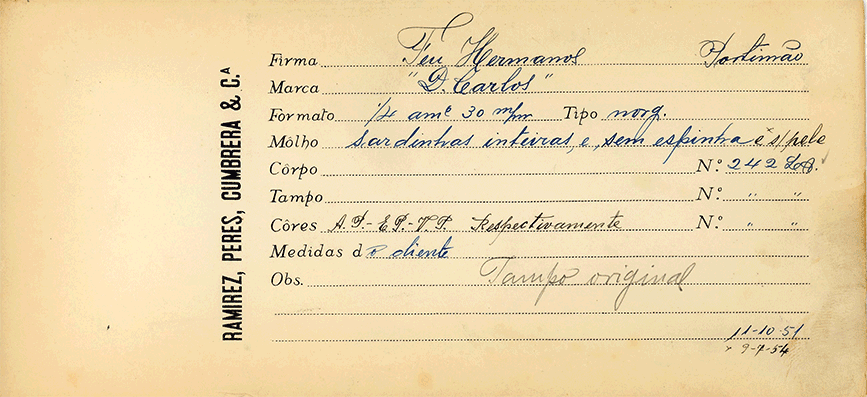 RAMIREZ, PERES, CUMBRERA & C.ª
Firma Feu Hermanos Portimão
Marca "D. Carlos"
Formato 1/4 amc 30 m/m Tipo norg.
Môlho sardinhas inteiras, e, sem espinha e s/ pele
Côrpo N.º 242
Tampo N.º " "
Côres A.P.- E.P.- V.P. Respectivamente N.º " "
Medidas do cliente
Obs. Tampo original
11-10-51
9-7-54